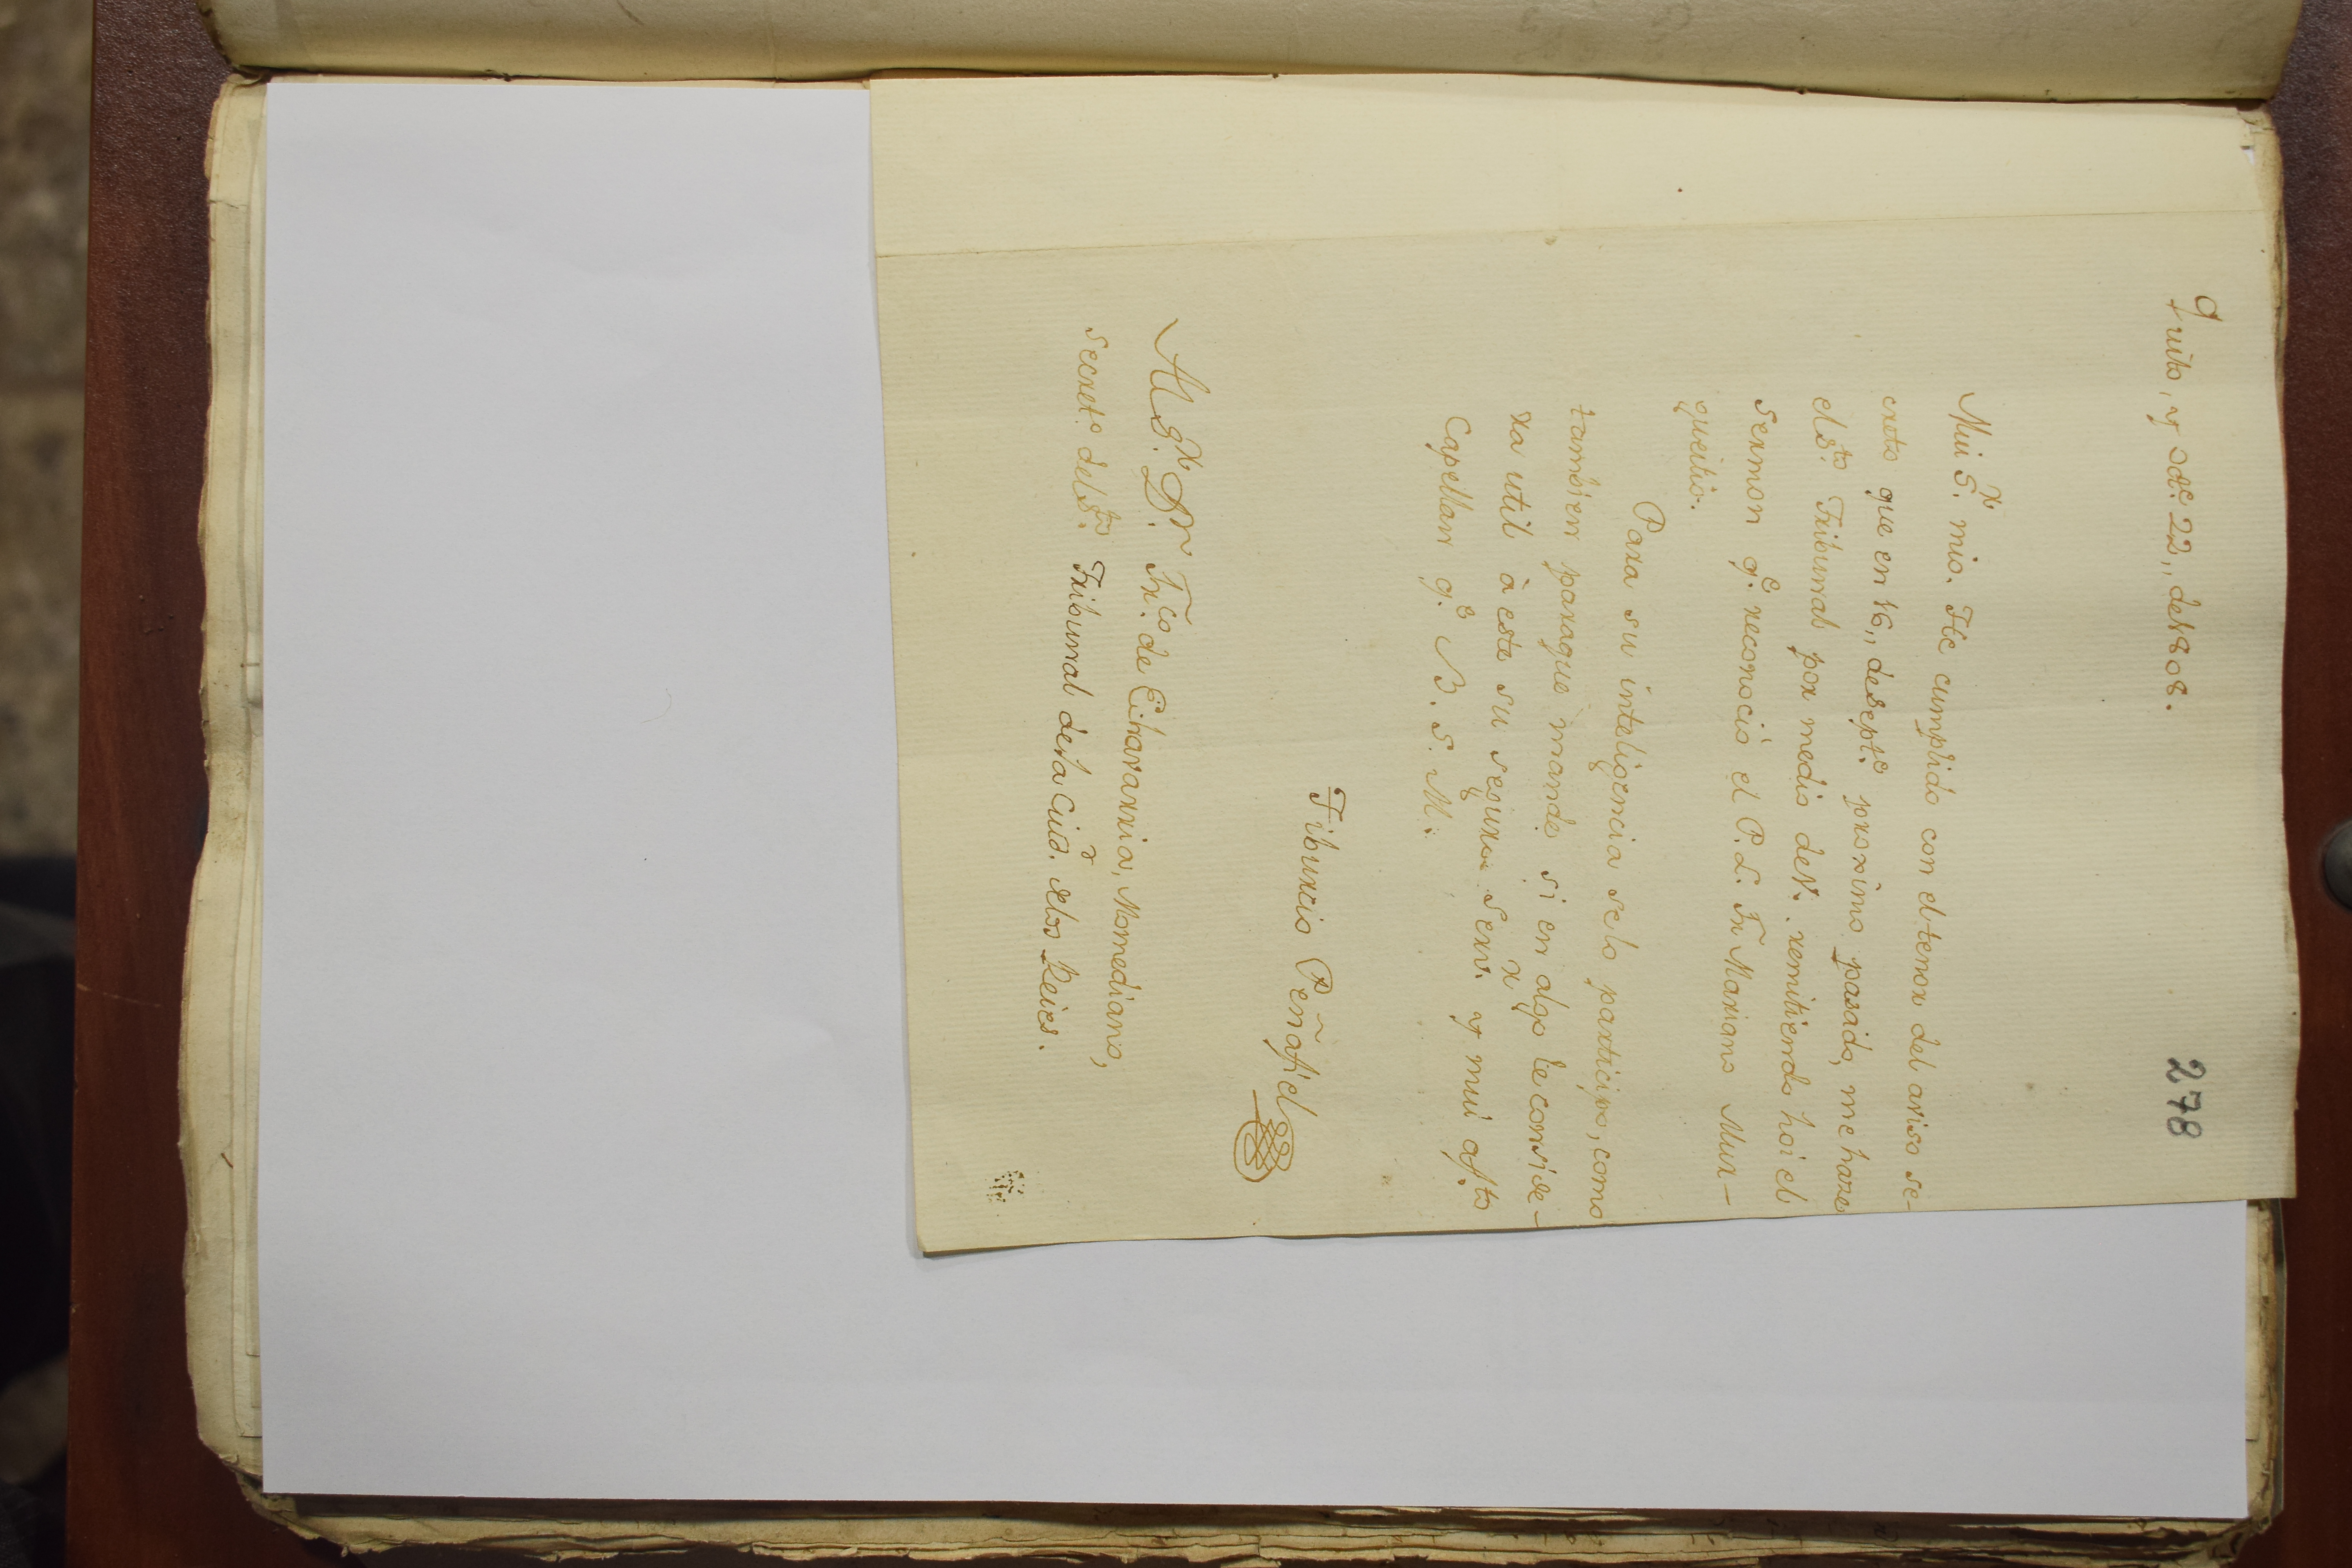 278
Quito, y Dic.e 22,, de 1808.
Mui S.r mio. He cumplido con el tenor del aviso se-
creto que en 16,, de Sept.e proximo pasado, me hace
el S.to Tribunal por medio de V. remitiendo hoi el
sermon q.e reconoció el P. L. Fr Mariano Mur-
queitio.
Para su inteligencia se lo participo, como
tambien para que mande si en algo le conside-
ra util à este su seguro serv.r y mui af.to
Capellan q.e B. S. M.
Tiburcio Peñafiel
Al S.r D.r Fr.co de Echavarria, Momediano,
secret.o del S.to Tribunal de la Ciud.d de los Reies.